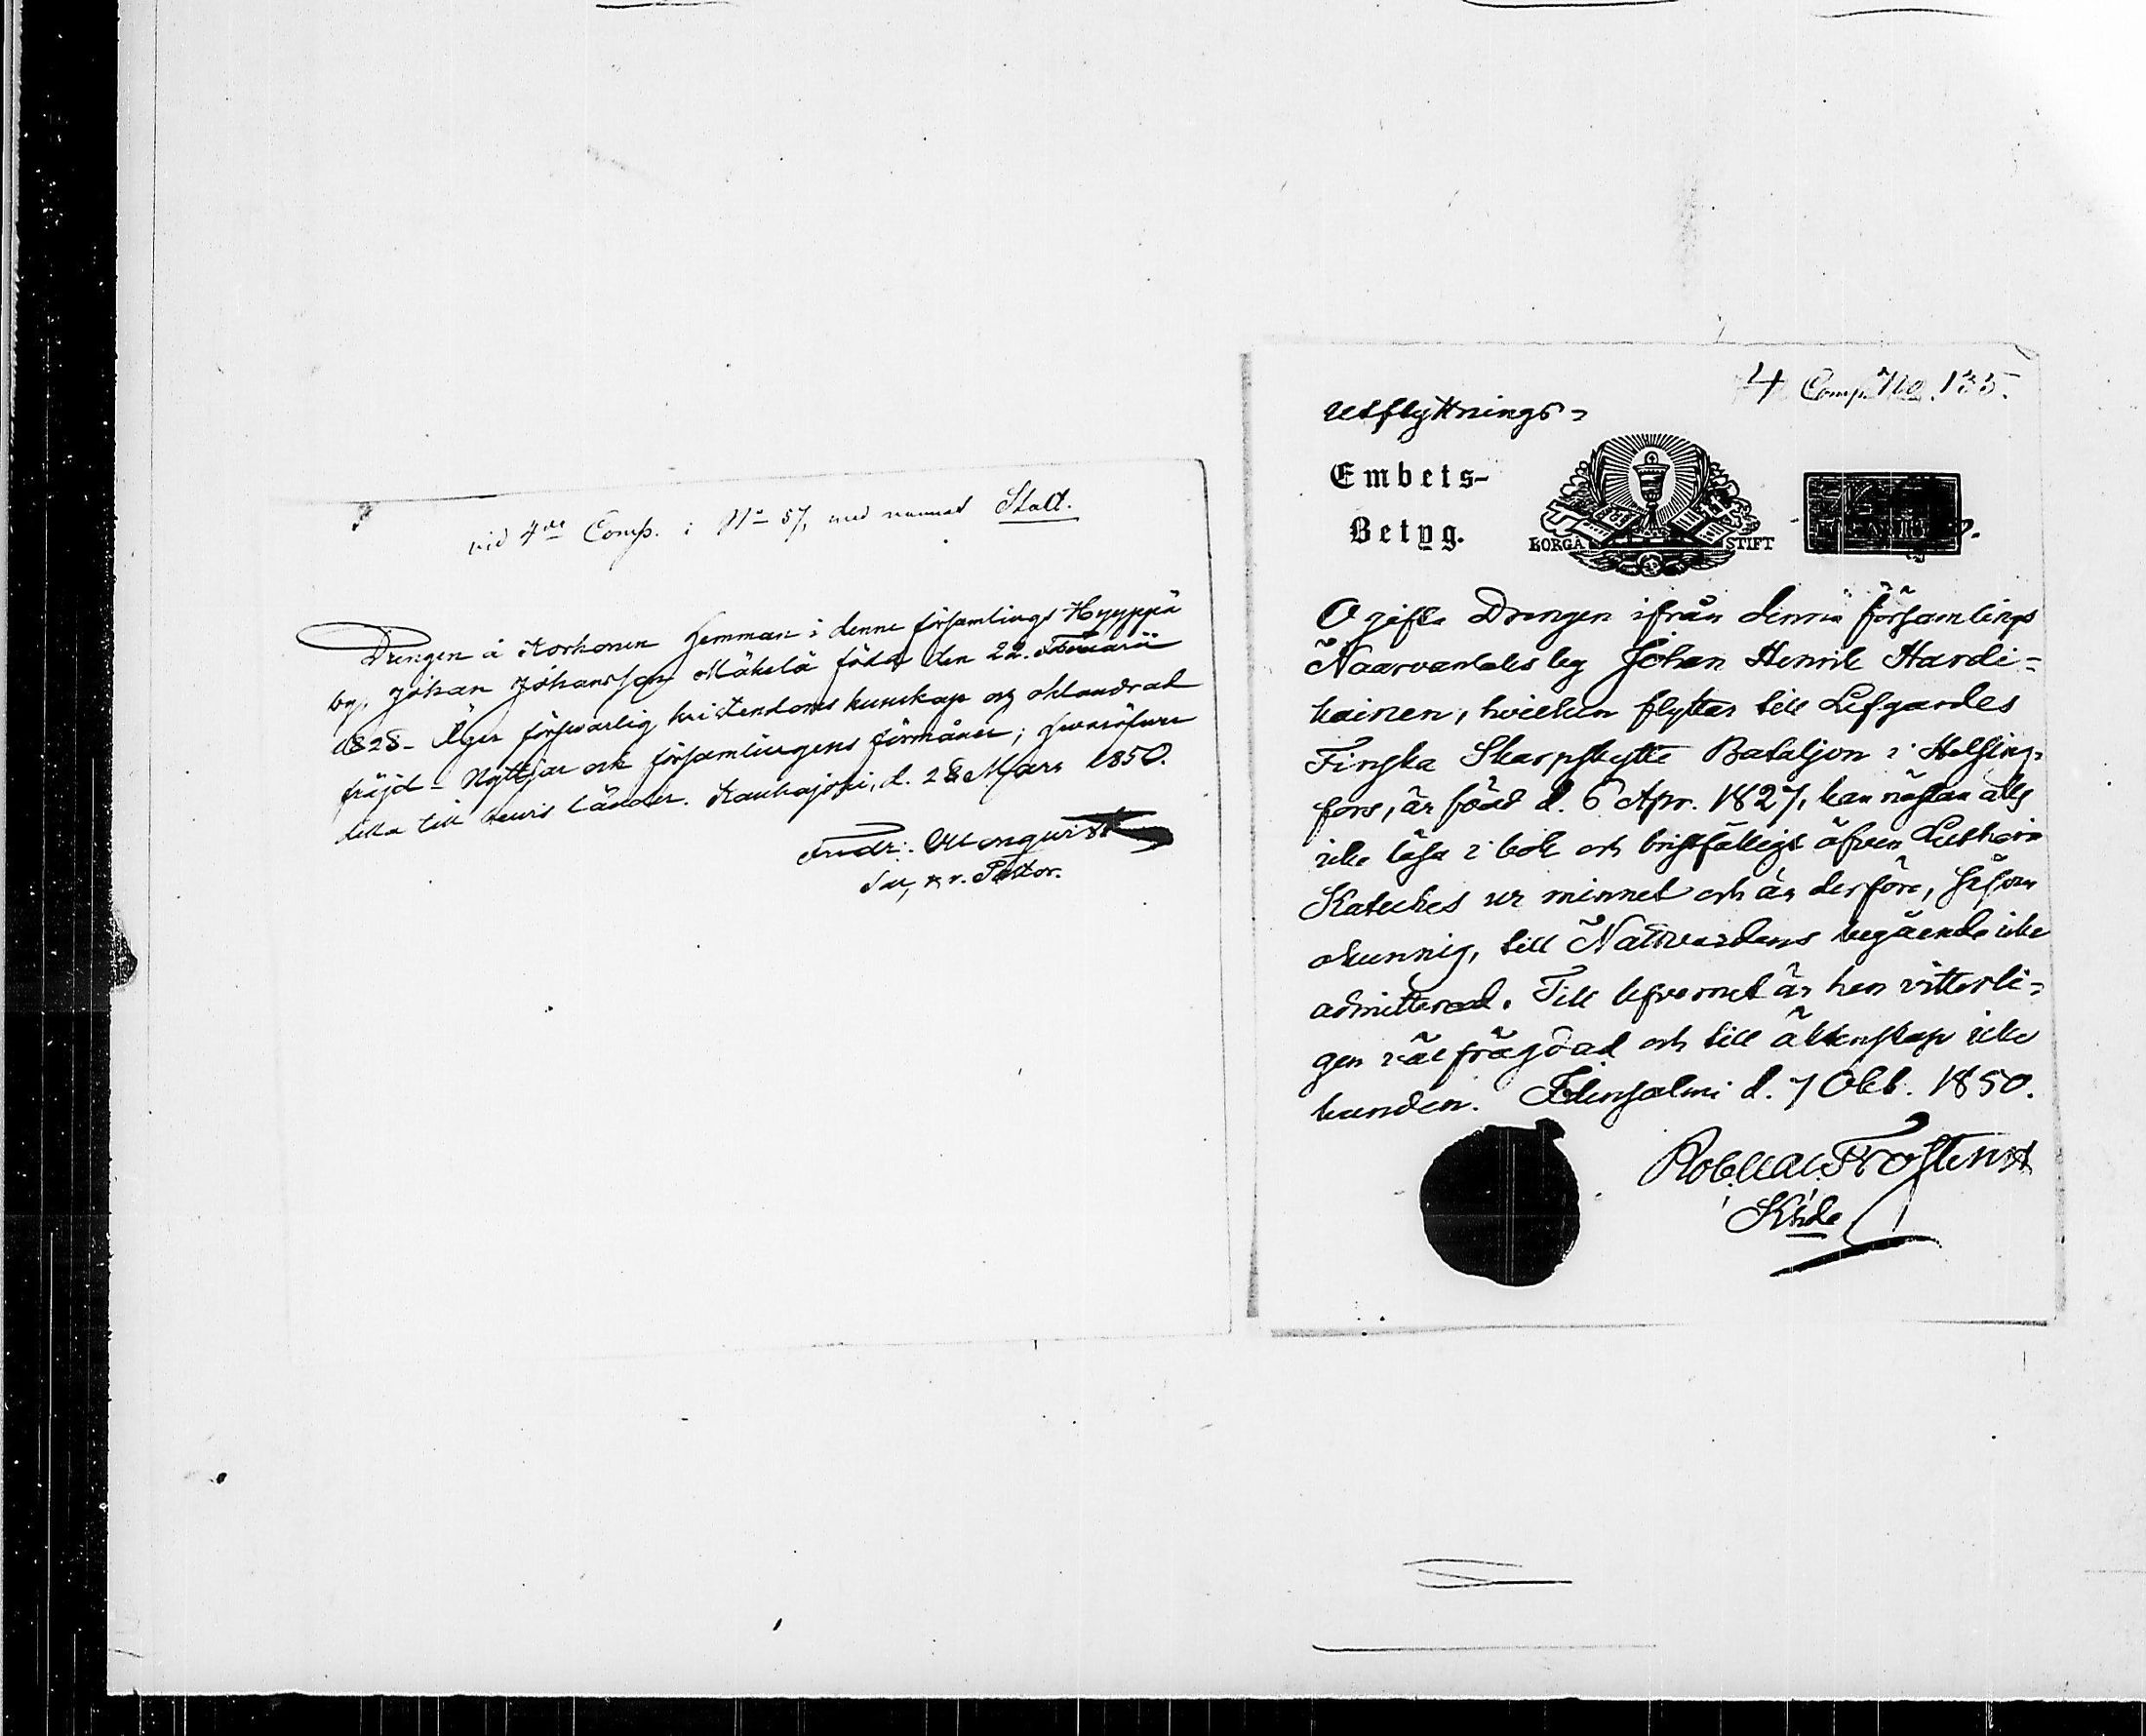 vid 4de Comp. i No 57, med namnet Stolt.
Drengen å Korkonen hemman i denne församlings Hyyppä
by, Johan Johansson Mäkelä född den 22. Februarii
1828 - Äger förswarlig kristendoms kunskap og oklandrad
fräjd - Nyttjar ock församlingens förmåner; hwaröfwer
detta till bewis länder. Kauhajoki, d. 28 Mars 1850.
Fredr:
v. Pastor.
4 Comp. No 135.
Utflyttnings-
Embets-
Betyg.
BORGÅ STIFT
Ogifte Drengen ifrån denna församlings
Naarvanlaks by Johan Henrik Hardi-
kainen, hvilken flyttar till Lifgardes
Finska Skarpskytte Bataljon i Helsing-
fors, är född d. 6 Apr. 1827, kan nästan alls
icke läsa i bok och bristfälligt äfven Lutheri
Kateches ur minnet och är derföre, såsom
okunnig, till Nattvardens begående icke
admitterad. Till lefvernet är han vitterli-
gen välfrägdad och till äktenskap icke
bunden. Idensalmi d. 7 Okt. 1850.
Rob. Val. Frosterus
Khde